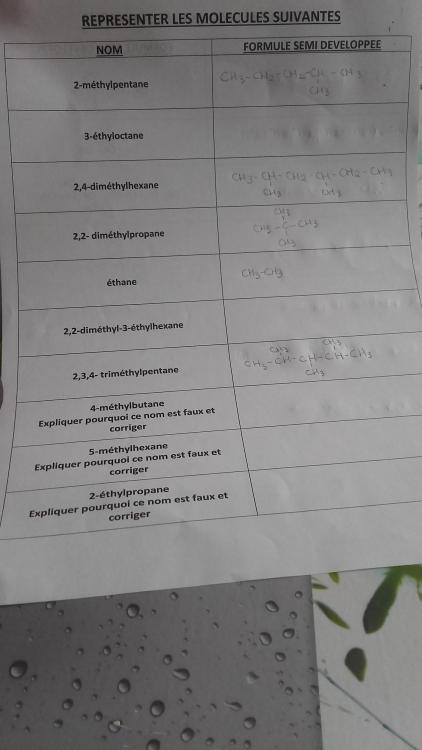 REPRESENTER LES MOLECULES SUIVANTES
NOM
FORMULE SEMI DEVELOPPEE
2-méthylpentane
CH3-CH2-CH2-CH-CH3
CH3
3-éthyloctane
2,4-diméthylhexane
CH3-CH-CH2-CH-CH2-CH3
CH3 CH3
2,2- diméthylpropane
CH3
CH3-C-CH3
CH3
éthane
CH3-CH3
2,2-diméthyl-3-éthylhexane
2,3,4- triméthylpentane
CH3 CH3
CH3-CH-CH-CH-CH3
CH3
4-méthylbutane
Expliquer pourquoi ce nom est faux et
corriger
5-méthylhexane
Expliquer pourquoi ce nom est faux et
corriger
2-éthylpropane
Expliquer pourquoi ce nom est faux et
corriger